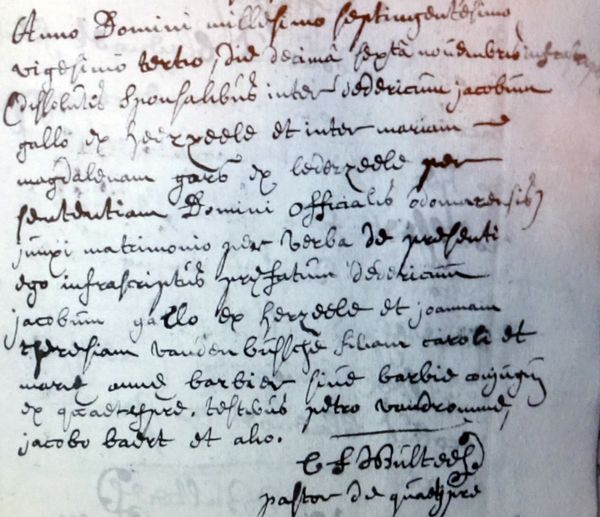 Anno Domini millesimo septingentesimo
vigesimo tertio die decima sexta novembris
dissolutis sponsalibus inter dedericum jacobum
gallo ex herzeele et inter mariam
magdalenam gars ex lederzeele per
sententiam Domini officialis odomarensis
junxi matrimonio per verba de presenti
ego infrascriptus prefatum dedericum
jacobum gallo ex herzeele et joannam
theresiam vanden bussche filiam caroli et
marie anne barbier sive barbie conjugum
ex quaetypre. testibus petro vandromme
jacobo baert et alio.
Bulteel
pastor de quaetypre